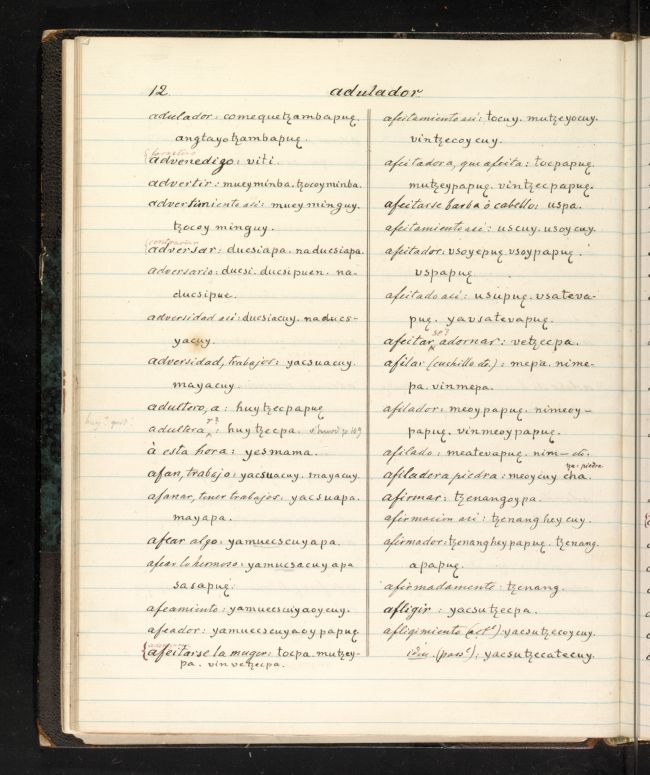 12.
adulador
adulador: comequetzambapuę.
angtayotzambapuę.
forastero
advenedigo: viti.
advertir: mueyminba. tzocoyminba.
advertimiento asi: muey minguy.
tzocoy minguy.
contrariar
adversar: ducsiapa. naducsiapa.
adversario: ducsi. ducsipuen. na-
ducsipue.
adversidad asi: ducsiacuy. naducs-
yacuy.
adversidad, trabajos: yacsuacuy.
mayacuy.
adultero, a: huytzecpapuę
adultera: huytzecpa.
à esta hora: yesmama.
afan, trabajo: yacsuacuy. mayacuy.
afanar, tener trabajos: yacsuapa.
mayapa.
afear algo: yamuecscuyapa.
afear lo hermoso: yamucsacuyapa
sasapuę.
afeamiento: yamuecscuyaoycuy.
afeador: yamuecscuyaoypapuę
afeitarse la muger: tocpa. mutzey-
pa. vinvetzecpa.
afeitamiento asi: tocuy. mutzeyocuy.
vintzecoycuy.
afeitadora, que afeita: tocpapuę.
mutzeypapuę. vintzecpapuę.
afeitarse barba ò cabello: uspa.
afeitamiento asi: uscuy. usoycuy.
afeitador: vsoyepuę vsoypapuę.
vspapuę
afeitado asi: usupuę. vsateva-
puę. yavsatevapuę.
se?
afeitar, adornar: vetzecpa.
afilar (cuchillo etc.): mepa. nime-
pa. vinmepa.
afilador: meoypapuę. nimeoy-
papuę. vinmeoypapuę.
afilado: meatevapuę. nim— etc.
ya: piedra.
afiladera piedra: meoycuy cha.
afirmar: tzenangoypa.
afirmacion asi: tzenangheycuy.
afirmador: tzenangheypapuę. tzenang-
apapuę.
afirmadamente: tzenang.
afligir: yacsutzecpa.
afligimiento (act.e) yacsutzecoycuy.
idem. (pas.e): yacsutzecatecuy.